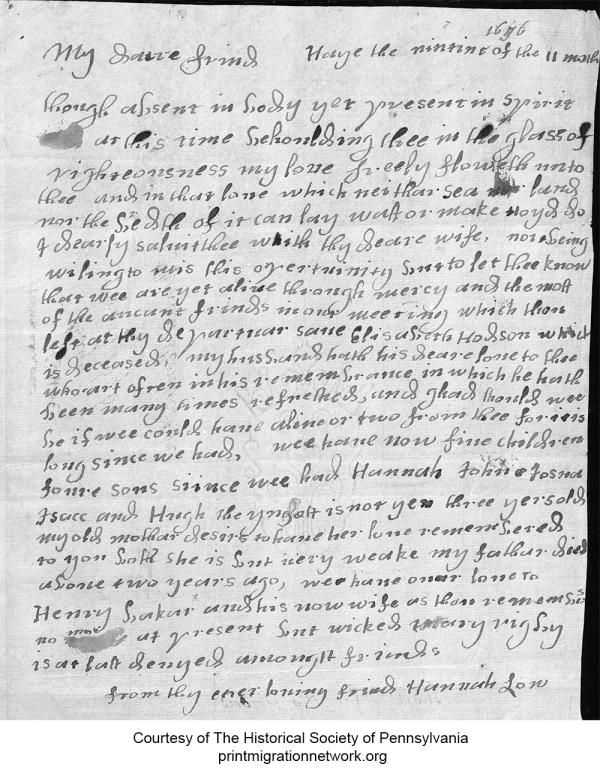 1676
My deare frind Haye the nintine of the 11 month
though absent in body yet present in spirit
at this time behoulding thee in the glass of
righteousness my love freely floweth unto
thee and in that love which neithar sea nor land
nor the bredth of it can lay wast or make voyd do
I dearly salut thee with thy deare wife, not being
wiling to mis this opertunity but to let thee know
that wee are yet alive through mercy and the most
of the ancant frinds in our meeting which thou
left at thy departuar save Elisabeth Hodson which
is deceased, my husband hath his deare love to thee
who art ofen in his remembrance in which he hath
been many times refreshed, and glad should wee
be if wee could have a line or two from thee for it is
long since we had, wee have now five children
foure sons siince wee had Hannah John & Josua
Isacc and Hugh the yngest is not yet three yers old
my old mothar desirs to have her love remembered
to you both she is but very weake my fathar died
above two years ago, wee have our love to
Henry bakar and his now wife as thou remembrs
no more at present but wicked mary rigby
is at last denyed amongst frinds
from thy ever loving frind Hannah Low
Courtesy of The Historical Society of Pennsylvania
printmigrationnetwork.org